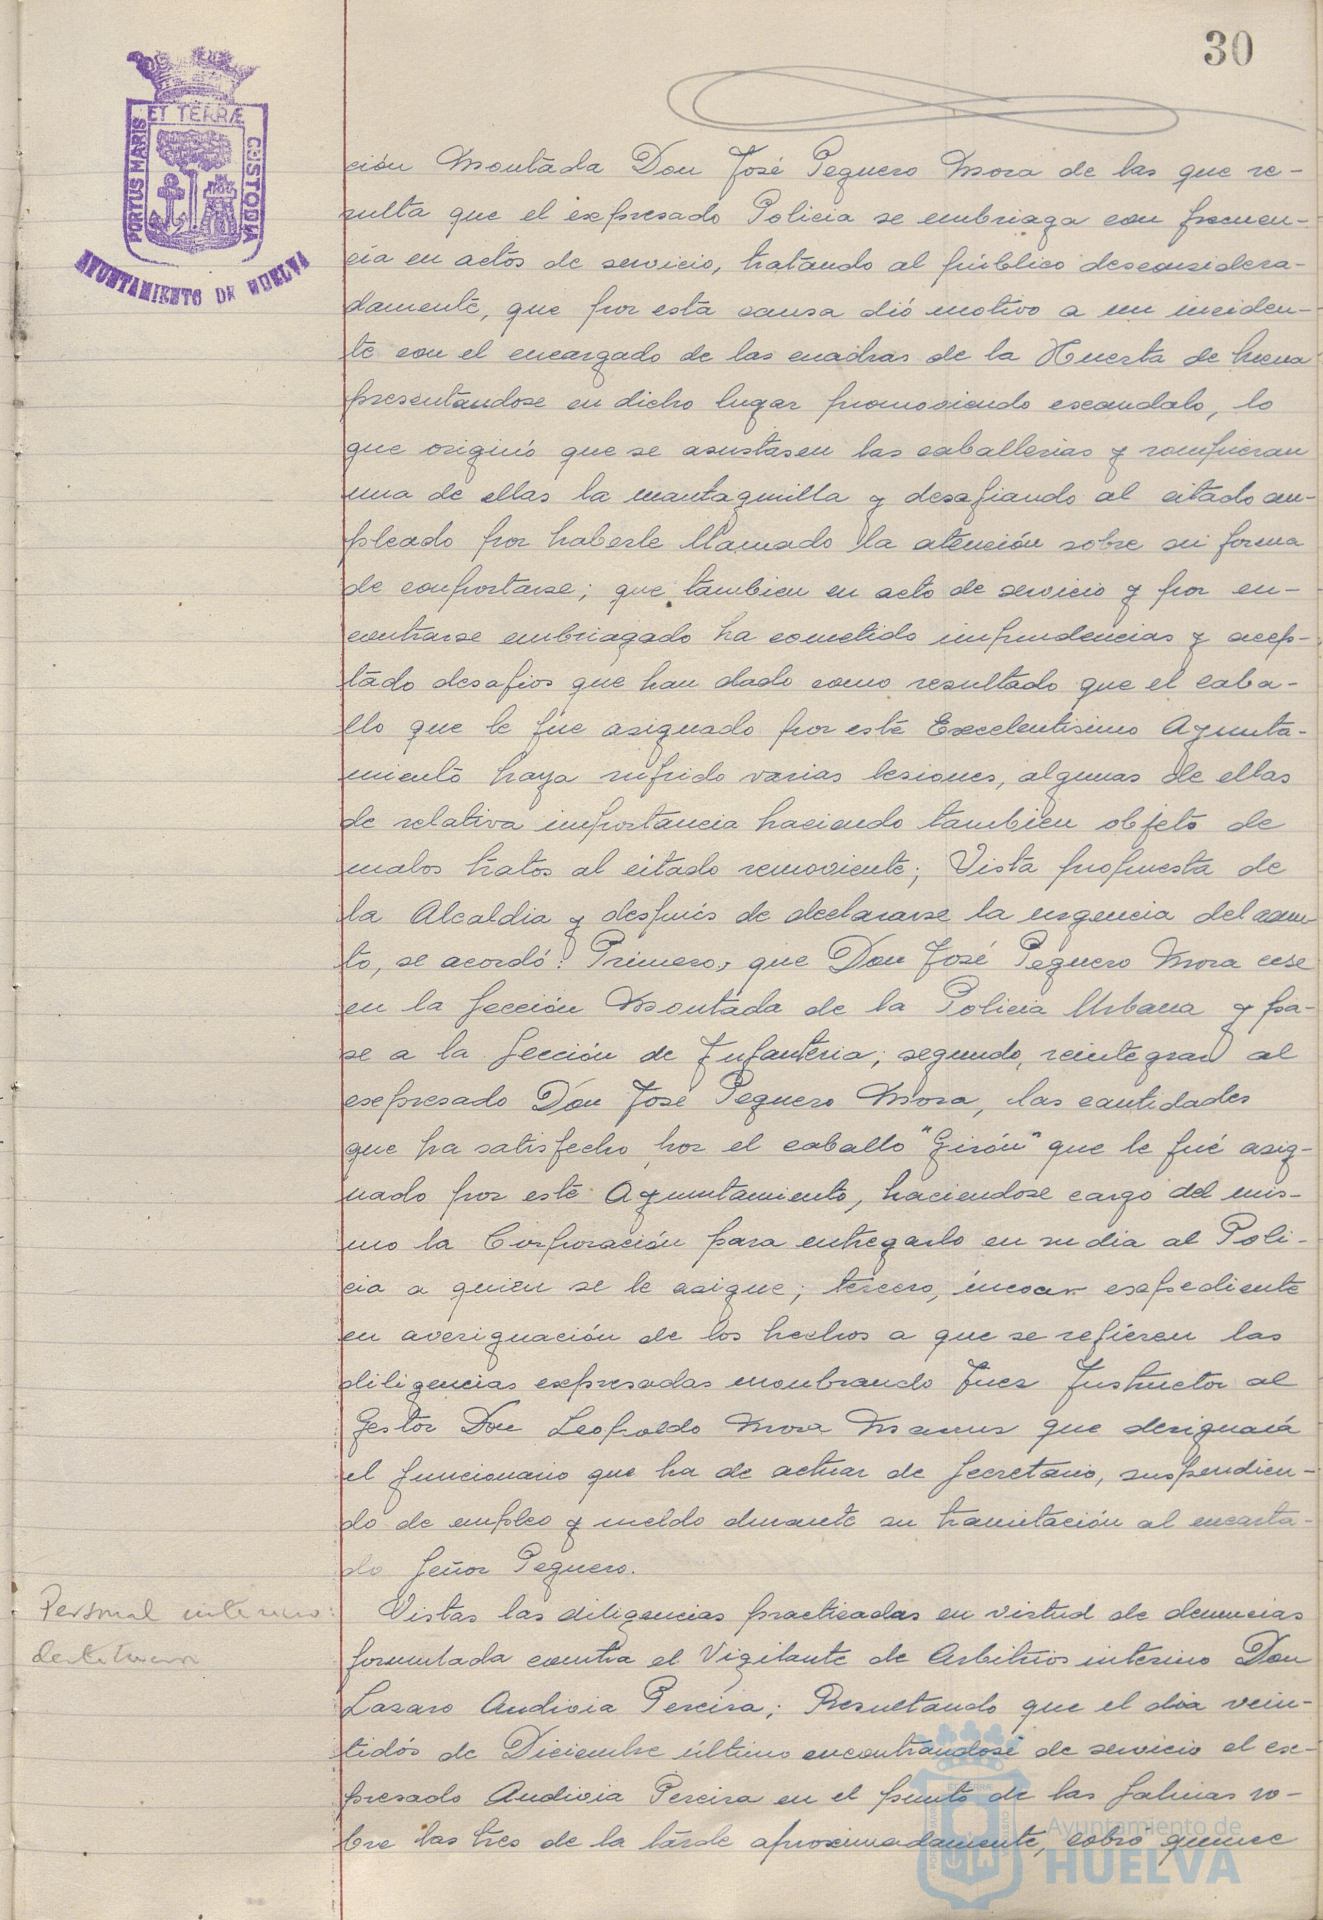 30
PORTUS MARIS ET TERRÆ CUSTODIA
AYUNTAMIENTO DE HUELVA
ción Montada Don José Peguero Mora de las que re-
sulta que el expresado Policia se embriaga con frecuen-
cia en actos de servicio, tratando al público desconsidera-
damente, que por esta causa dió motivo a un inciden-
te con el encargado de las cuadras de la Huerta de Mena
presentandose en dicho lugar promoviendo escandalo, lo
que originó que se asustasen las caballerias y rompieran
una de ellas la mantaquilla y desafiando al citado em-
pleado por haberle llamado la atención sobre su forma
de comportarse; que tambien en acto de servicio y por en-
contrarse embriagado ha cometido imprudencias y acep-
tado desafios que han dado como resultado que el caba-
llo que le fue asignado por este Excelentisimo Ayunta-
miento haya sufrido varias lesiones, algunas de ellas
de relativa importancia haciendo tambien objeto de
malos tratos al citado semoviente; Vista propuesta de
la Alcaldia y después de declararse la urgencia del asun-
to, se acordó: Primero, que Don José Peguero Mora cese
en la Sección Montada de la Policia Urbana y pa-
se a la Sección de Infanteria; segundo, reintegrar al
expresado Don José Peguero Mora, las cantidades
que ha satisfecho por el caballo "Girón" que le fué asig-
nado por este Ayuntamiento, haciendose cargo del mis-
mo la Corporación para entregarlo en su dia al Poli-
cia a quien se le asigue; tercero, incoar expediente
en averiguación de los hechos a que se refieren las
diligencias expresadas nombrando Juez Instructor al
Gestor Don Leopoldo Mora que designará
el funcionario que ha de actuar de Secretario, suspendien-
do de empleo y sueldo durante su tramitación al encarta-
do Señor Peguero.
Personal interino:
destitucion
Vistas las diligencias practicadas en virtud de denuncias
formulada contra el Vigilante de Arbitrios interino Don
Lazaro Andivia Pereira; Resultando que el dia vein-
tidós de Diciembre último encontrandose de servicio el ex-
presado Andivia Pereira en el punto de las Salinas so-
bre las tres de la tarde aproximadamente, cobró quince
Ayuntamiento de
HUELVA